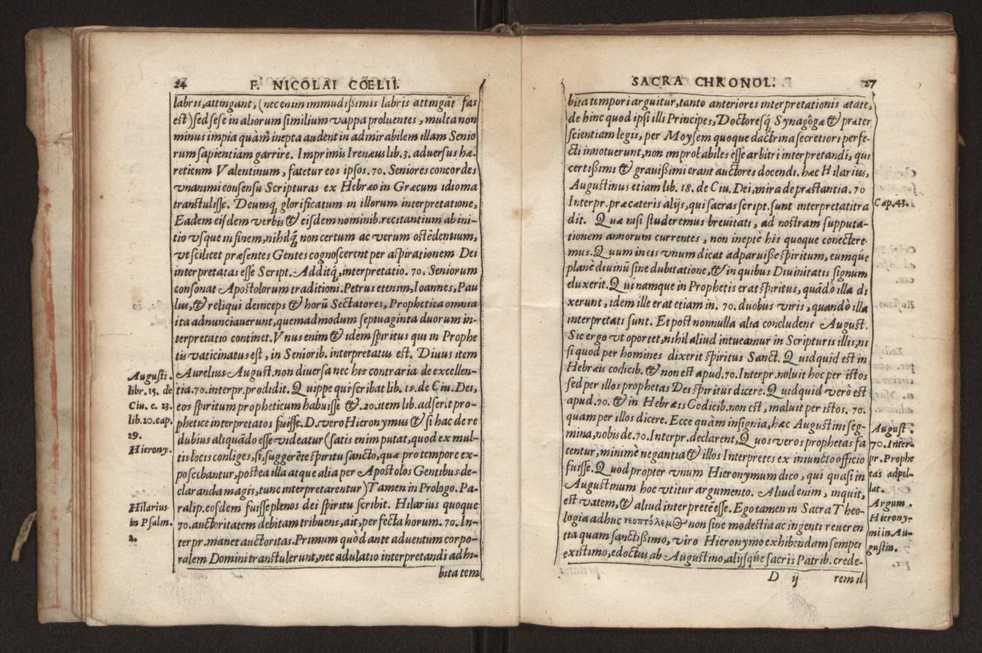 24 F. NICOLAI COELII.
labris, attingant, (nec enim immudißimis labris attingāt fas
est) sed sese in aliorum similium vappa proluentes, multa non
minus impia quàm inepta audent in admirabilem illam Senio
rum sapientiam garrire. Imprimis Irenæus lib. 3. adversus hæ-
reticum Valentinum, fatetur eos ipsos. 70. Seniores concordes
vnanimi cōsensu Scripturas ex Hebræo in Græcum idioma
transtulisse. Deumq; glorificatum in illorum interpretatione,
Eadem eisdem verbis & eisdem nominib. recitantium ab ini-
tio vsque in finem, nihilq; non certum ac verum ostēdentium,
vt scilicet præsentes Gentes cognoscerent per aspirationem Dei
interpretatas esse Script. Additq; interpretatio. 70. Seniorum
consonat Apostolorum traditioni. Petrus etenim, Ioannes, Pau
lus, & reliqui deinceps & horū Sectatores, Prophetica omnia
ita adnunciaverunt, quemadmodum septuaginta duorum in-
terpretatio continet. Vnus enim & idem spiritus qui in Prophe
tis vaticinatus est, in Seniorib. interpretatus est. Diuus item
Aurelius August. non diversa nec his contraria de excellen-
tia. 70. interpr. prodidit. Quippe qui scribat lib. 15. de Ciu. Dei,
eos spiritum propheticum habuisse &. 20. item lib. adserit pro-
phetice interpretatos fuisse. D. vero Hieronymus & si hac de re
dubius aliquādo esse videatur (satis enim putat, quod ex mul-
tis locis conliges, si, suggerēte spiritu sancto, quæ pro tempore ex-
poscebantur, postea illa atque alia per Apostolos Gentibus de-
claranda magis, tunc interpretarentur) Tamen in Prologo. Pa-
ralip. eosdem fuisse plenos dei spiritu scribit. Hilarius quoque
70. auctoritatem debitam tribuens, ait, perfecta horum. 70. In-
terpr. manet auctoritas. Primum quòd ante aduentum corpo-
ralem Domini transtulerunt, nec adulatio interpretandi adhi-
bita tem
Augusti.
libr. 15. de
Ciu. c. 23.
lib. 20. cap.
29.
Hierony.
Hilarius
in Psalm.
2.
SACRA CHRONOL. 27
bita tempori arguitur, tanto anteriores interpretationis ætate,
de hinc quod ipsi illi Principes, Doctoresq; Synagogæ & præter
scientiam legis, per Moysem quoque dactrina secretiori perfe-
cti innotuerunt, non improbabiles esse arbitri interpretandi, qui
certißimi & gravißimi erant auctores docendi. hæc Hilarius,
Augustinus etiam lib. 18. de Ciu. Dei, mira de præstantia. 70
Interpr. præ cæteris alijs, qui sacras script. sunt interpretati tra
dit. Quæ nisi studeremus breuitati, ad nostram supputa-
tionem annorum currentes, non ineptè his quoque conectere-
mus. Quum in eis vnum dicat adparuisse spiritum, eumque
planè divinū sine dubitatione, & in quibus Divinitatis signum
eluxerit. Qui namque in Prophetis erat spiritus, quādo illa di
xerunt, idem ille erat etiam in. 70. duobus viris, quando illa
interpretati sunt. Et post nonnulla alia concludens August.
Sic ergo vt oportet, nihil aliud intueamur in Scripturis illis, ni
si quod per homines dixerit spiritus Sanct. Quidquid est in
Hebræis codicib. & non est apud. 70. Interpr. noluit hoc per istos
sed per illos prophetas Dei spiritus dicere. Quidquid verò est
apud. 70. & in Hebræis Codicib. non est, maluit per istos. 70.
quam per illos dicere. Ecce quàm insignia, hæc Augustini seg-
mina, nobis de. 70. Interpr. declarent, Quos veros prophetas fa
tentur, minimè negantia & illos Interpretes ex iniuncto officio
fuisse. Quod propter vnum Hieronymum dico, qui quasi in
Augustinum hoc vtitur argumento. Aliud enim, inquit,
est vatem, & aliud interpretē esse. Ego tamen in Sacra Theo-
logia adhuc non sine modestia ac ingenti reueren
tia quam sanctißimo, viro Hieronymo exhibendam semper
existimo, edoctus ab Augustino, alijsque sacris Patrib. crede-
D ij rem il
Cap. 43.
August.
70. Inter-
pr. Prophe
tas adpel-
lat.
Argum.
Hierony-
mi in Au-
gustin.